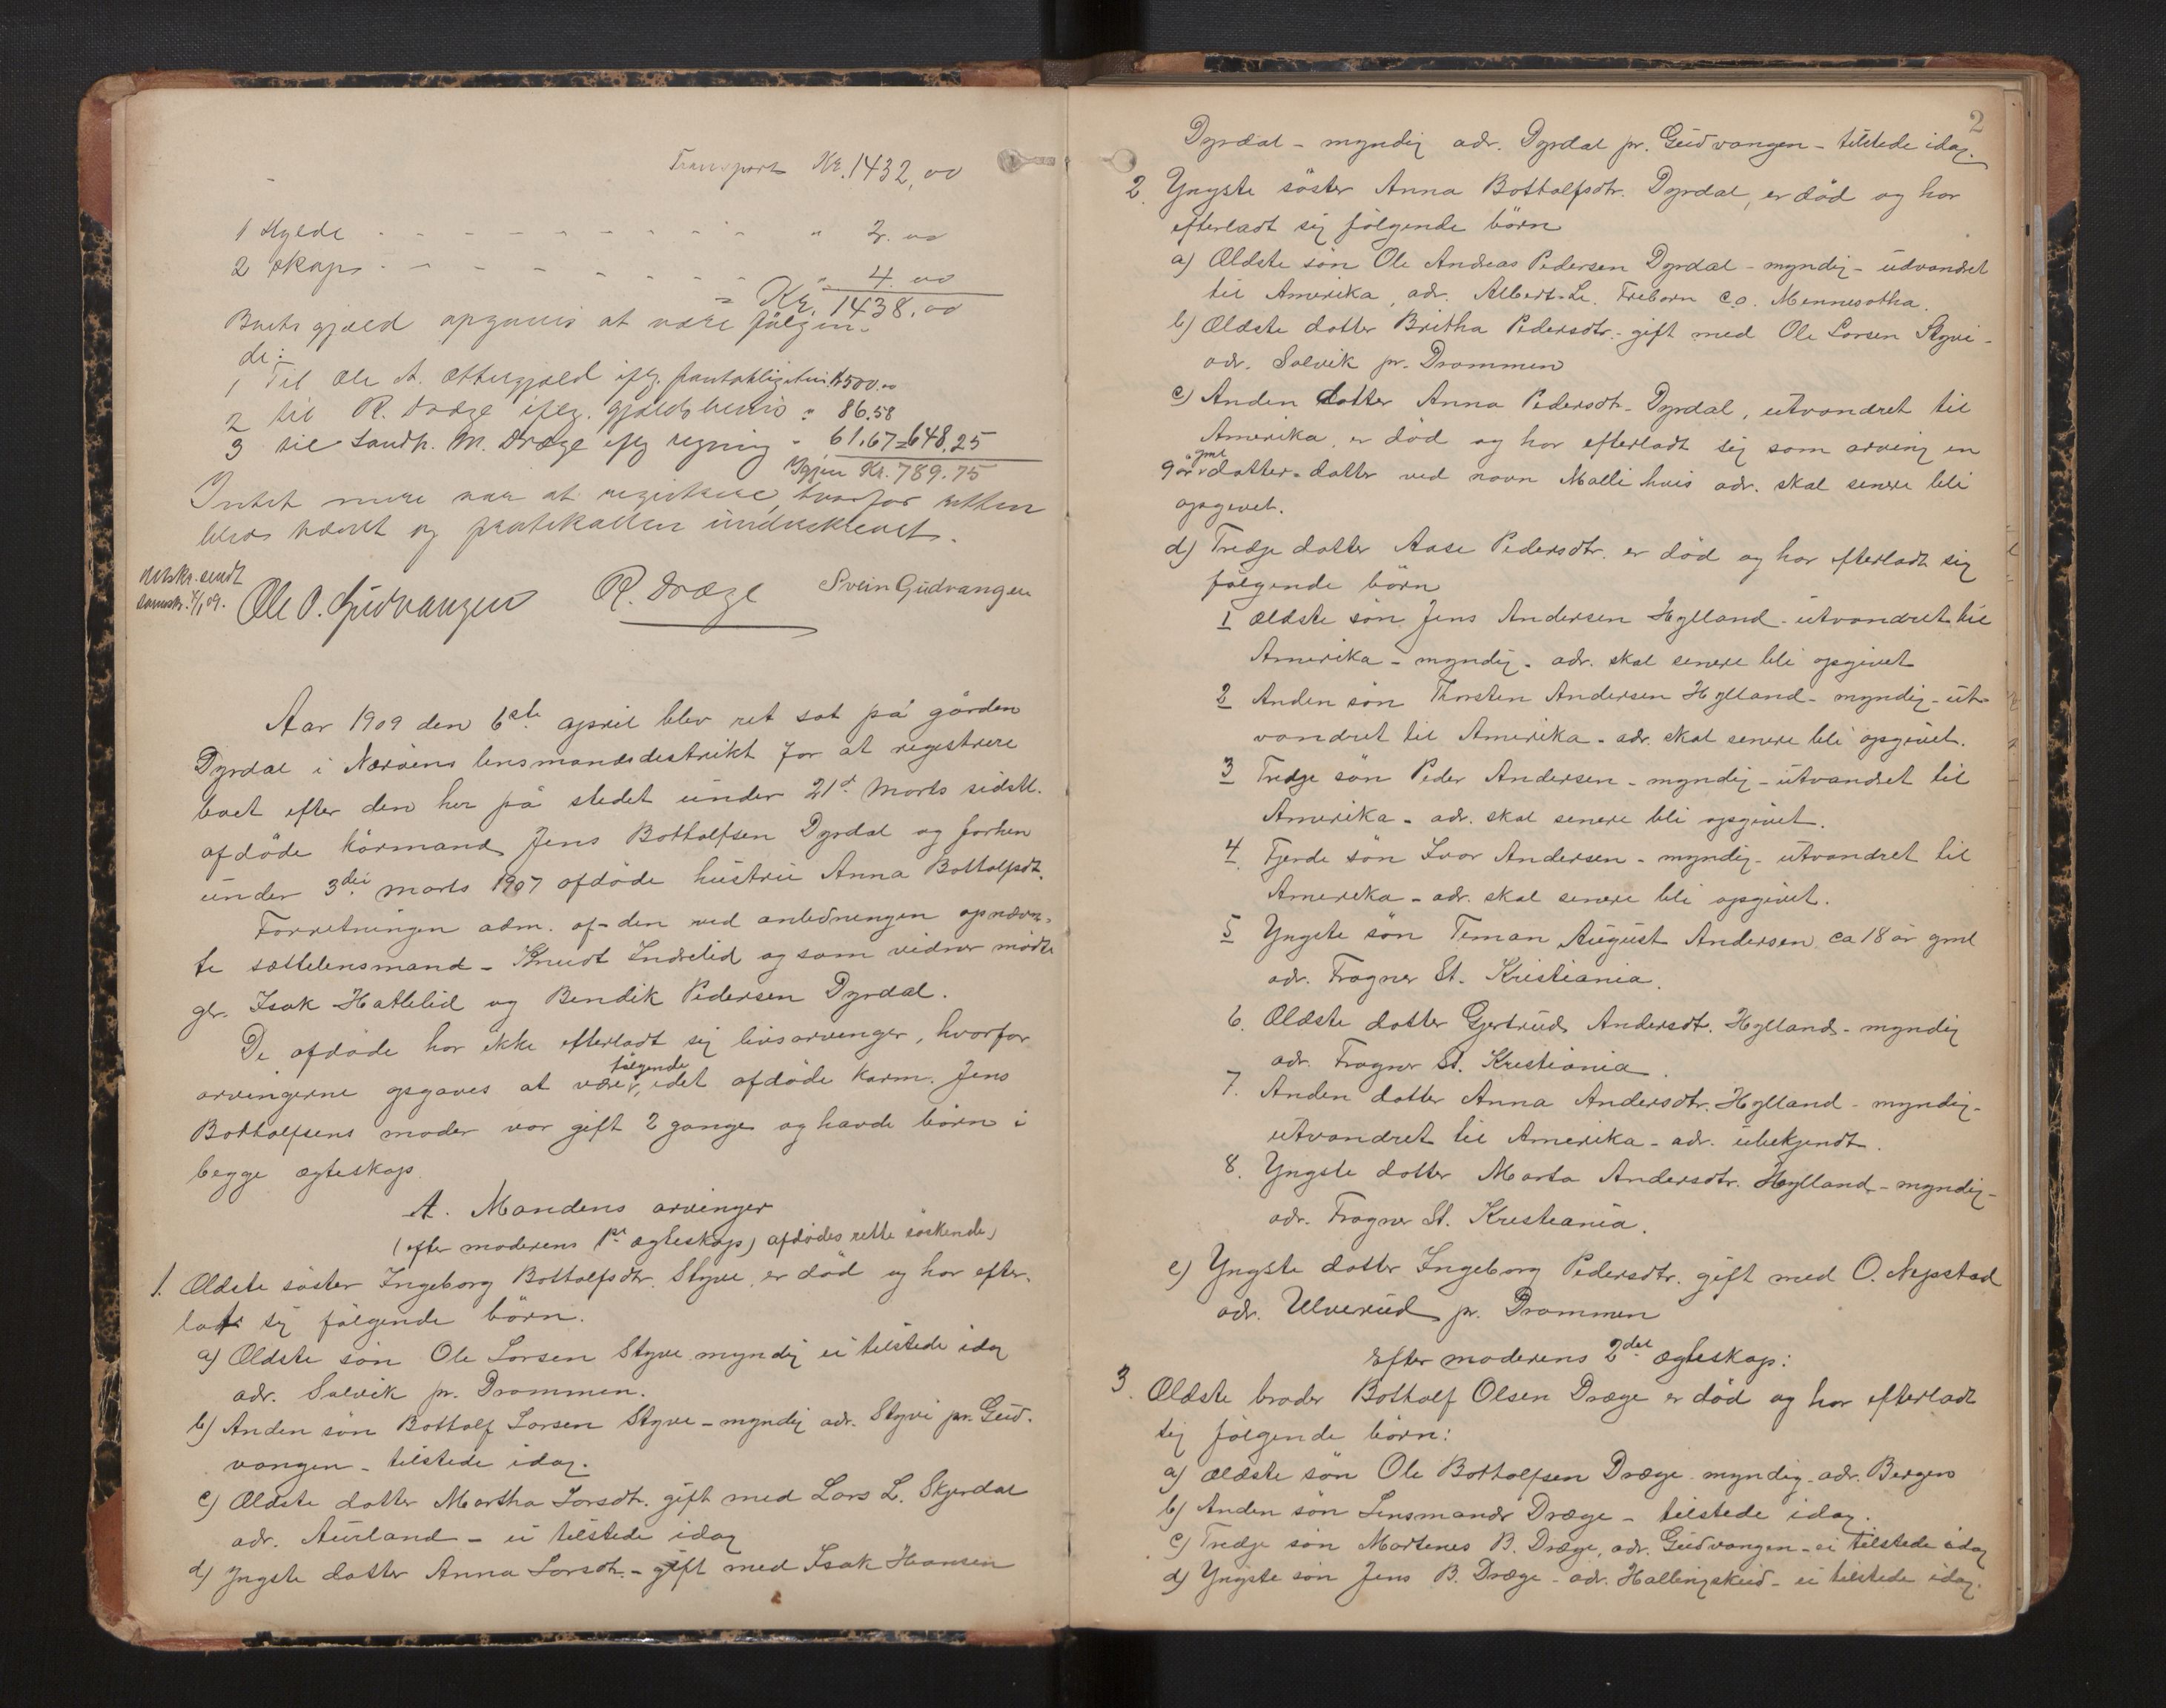 Transport Kr. 1432,00
1 Hylde - - - - - - - - - - " 2.00
2 skaps - - - - - - - - - " 4.00
= Kr. 1438.00
Boets gjæld opgaves at være følgen-
de:
1 Til Ole A. Ottergjæld iflg. pantobligation Kr 500.00
2 til R. Dræge iflg. gjældsbevis " 86.58
3 til Landh. M. Dræge iflg regning " 61.67 = 648.25
Igjen Kr. 789.75
Intet mere var at registrere, hvorfor retten
blev hævet og protokollen underskrevet.
Utskr. sendt
sorenskr. 4/1 09.
Ole O. Gudvangen R. Dræge Svein Gudvangen
Aar 1909 den 6te april blev ret sat på gården
Dyrdal i Nærøens lensmandsdistrikt for at registrere
boet efter den her på stedet under 21de marts sidstl.
afdøde kårmand Jens Botholfsen Dyrdal og forhen
under 3die marts 1907 afdøde hustru Anna Botolfsdt.
Forretningen adm. af den ved anledningen opnævn-
te sættelensmand - Knudt Indrelid og som vidner mødte
gbr. Isak Hatlelid og Bendik Pedersen Dyrdal.
De afdøde har ikke efterladt sig livsarvinger, hvorfor
arvingerne opgaves at være følgende, idet afdøde karm. Jens
Botholfsens moder var gift 2 gange og havde børn i
begge ægteskap.
A. Mandens arvinger
(efter moderens 1ste ægteskap) afdødes rette søskende)
1. Ældste søster Ingeborg Botholfsdtr. Styve, er død og har efter-
latt sig følgende børn.
a) Ældste søn Ole Larsen Styve myndig ei tilstede idag
adr. Solvik pr. Drammen.
b) Anden søn Botholf Larsen Styve - myndig adr. Styvi pr. Gud-
vangen - tilstede idag.
c) Ældste datter Martha Larsdtr. gift med Lars L. Skjerdal
adr. Aurland - ei tilstede idag
d) Yngste datter Anna Larsdtr. - gift med Isak Hansen
2
Dyrdal - myndig adr. Dyrdal pr. Gudvangen - tilstede idag.
2. Yngste søster Anna Botholfsdtr. Dyrdal, er død og har
efterladt sig følgende børn
a) Ældste søn Ole Andreas Pedersen Dyrdal - myndig - udvandret
til Amerika, adr. Albert-Le. Freborn c.o. Mennesotha.
b) Ældste datter Britha Pedersdtr. - gift med Ole Larsen Styvi -
adr. Solvik pr. Drammen
c) Anden datter Anna Pedersdtr. Dyrdal, utvandret til
Amerika, er død og har efterladt sig som arving en
9 år gml datter-datter ved navn Malli hvis adr. skal senere bli
opgivet.
d) Tredje datter Aase Pedersdtr. er død og har efterladt sig
følgende børn
1 Ældste søn Jens Andersen Hylland - utvandret til
Amerika - myndig - adr. skal senere bli opgivet
2 Anden søn Thorsten Andersen Hylland - myndig - ut-
vandret til Amerika - adr. skal senere bli opgivet.
3 Tredje søn Peder Andersen - myndig - utvandret til
Amerika - adr. skal senere bli opgivet.
4. Fjerde søn Ivar Andersen - myndig - utvandret til
Amerika - adr. skal senere bli opgivet.
5 Yngste søn Teman August Andersen ca 18 år gml
adr. Frogner St. Kristiania.
6. Ældste datter Gjertrud Andersdt. Hylland - myndig
adr. Frogner St. Kristiania.
7. Anden datter Anna Andersdtr. Hylland - myndig -
utvandret til Amerika - adr. ubekjendt.
8. Yngste datter Marta Andersdtr. Hylland - myndig -
adr. Frogner St. Kristiania.
e) Yngste datter Ingeborg Pedersdtr. gift med O. Nepstad
adr. Ulverud pr. Drammen
Efter moderens 2det ægteskap:
3. Ældste broder Botholf Olsen Dræge er død og har efterladt
sig følgende børn:
a) Ældste søn Ole Botholfsen Dræge - myndig - adr. Bergen
b) Anden søn Lensmand Dræge - tilstede idag.
c) Tredje søn Martenes B. Dræge, adr. Gudvangen - ei tilstede idag
d) Yngste søn Jens B. Dræge - adr. Hallingskeid - ei tilstede idag.